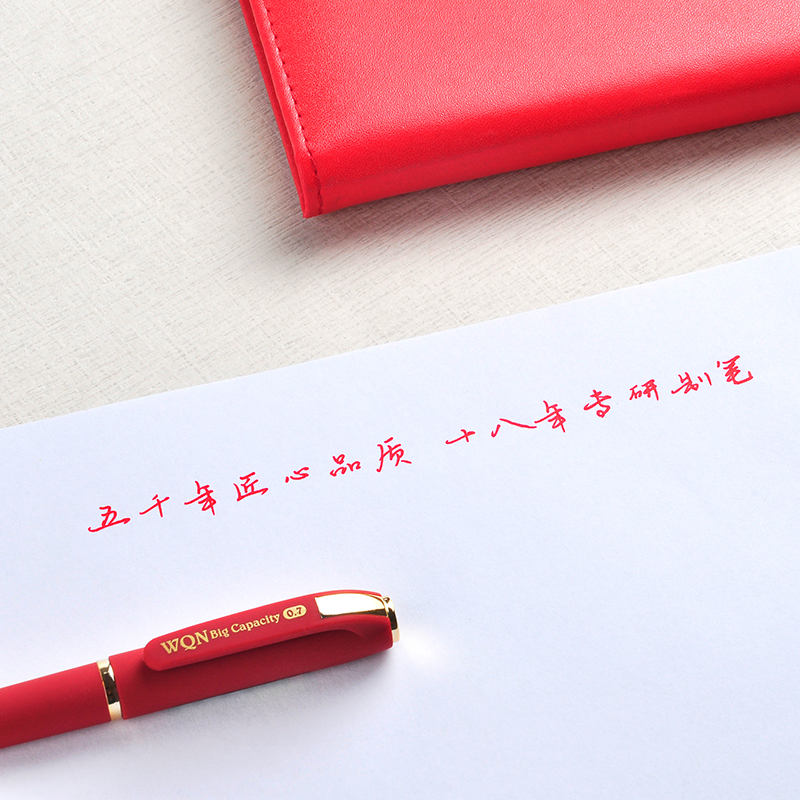 五千年匠心品质 十八年专研制笔
WQN Big Capacity 0.7